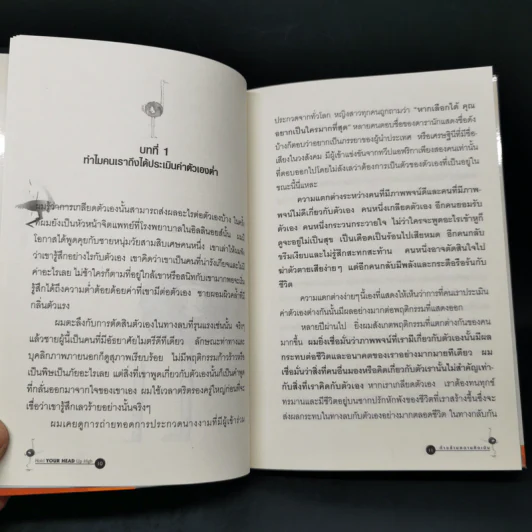 บทที่ 1
ทำไมคนเราถึงได้ประเมินค่าตัวเองต่ำ
ไม่รู้ว่าการเกลียดตัวเองนั้นสามารถส่งผลอะไรต่อตัวเองบ้าง ในครั้ง
ที่ผมยังเป็นหัวหน้าจิตแพทย์ที่โรงพยาบาลในอิลลินอยส์นั้น
โอกาสได้พูดคุยกับชายหนุ่มวัยสามสิบเศษคนหนึ่ง เขาเล่าให้ผมฟัง
ว่าเขารู้สึกอย่างไรกับตัวเอง เขาคิดว่าเขาเป็นคนที่น่ารังเกียจและไม่
ค่าอะไรเลย ไม่ว่าใครก็ตามที่อยู่ใกล้เขาหรือสนิทกับเขามากพอจะ
รู้สึกได้ถึงความต่ำต้อยด้อยค่าที่เขามีต่อตัวเอง ชายผอมผิวคล้ำที่มี
กลิ่นตัวแรง
ผมตะลึงกับการตัดสินตัวเองในทางลบที่รุนแรงเช่นนั้น จริงๆ
แล้วชายผู้นี้เป็นคนที่มีอัธยาศัยไมตรีดีทีเดียว ลักษณะท่าทางและ
บุคลิกภาพภายนอกก็ดูสุภาพเรียบร้อย ไม่มีพฤติกรรมก้าวร้าวหรือ
เป็นพิษเป็นภัยอะไรเลย แต่สิ่งที่เขาพูดเกี่ยวกับตัวเองนั้นก็เป็นคำพูด
ที่กลั่นออกมาจากใจของเขาเอง ผมใช้เวลาตริตรองครู่ใหญ่ก่อนที่จะ
เชื่อว่าเขารู้สึกเลวร้ายอย่างนั้นจริงๆ
ผมเคยดูการถ่ายทอดการประกวดนางงามที่มีผู้เข้าร่วม
Hold YOUR HEAD Up High 10
ประกวดจากทั่วโลก หญิงสาวทุกคนถูกถามว่า "หากเลือกได้ คุณ
อยากเป็นใครมากที่สุด" หลายคนตอบชื่อของดารานักแสดงชื่อดัง
บ้างก็ตอบว่าอยากเป็นภรรยาของผู้นำประเทศ หรือเศรษฐินีที่มีชื่อ
เสียงในวงสังคม มีผู้เข้าแข่งขันจากทวีปแอฟริกาเพียงสองคนเท่านั้น
ที่ตอบออกไปโดยไม่ลังเลว่าต้องการเป็นตัวของตัวเองที่เป็นอยู่ใน
ขณะนี้นี่แหละ
ความแตกต่างระหว่างคนที่มีภาพพจน์ดีและคนที่มีภาพ-
พจน์ไม่ดีเกี่ยวกับตัวเอง คนหนึ่งเกลียดตัวเอง อีกคนยอมรับ
ตัวเอง คนหนึ่งกระวนกระวายใจ ไม่ว่าใครจะพูดอะไรเข้าหูก็
ดูจะอยู่ไม่เป็นสุข เป็นเดือดเป็นร้อนไปเสียหมด อีกคนกลับ
รื่นเริงและไม่รู้สึกสะทกสะท้าน คนหนึ่งอาจตัดสินใจไป
ฆ่าตัวตายเสียง่ายๆ แต่อีกคนกลับมีพลังและกระตือรือร้นกับ
ชีวิต
ความแตกต่างง่ายๆ นี้เองที่แสดงให้เห็นว่าการที่คนเราประเมิน
ค่าตัวเองต่างกันนั้นมีผลอย่างมากต่อพฤติกรรมที่แสดงออก
หลายปีผ่านไป ยิ่งผมสังเกตพฤติกรรมที่แตกต่างกันของคน
มากขึ้น ผมยิ่งเชื่อมั่นว่าภาพพจน์ที่เรามีเกี่ยวกับตัวเองนั้นมีผล
กระทบต่อชีวิตและอนาคตของเราอย่างมากมายทีเดียว ผม
เชื่อมั่นว่าสิ่งที่คนอื่นมองหรือคิดเกี่ยวกับตัวเรานั้นไม่สำคัญเท่า-
กับสิ่งที่เราคิดกับตัวเอง หากเราเกลียดตัวเอง เราต้องทนทุกข์
ทรมานและมีชีวิตอยู่บนซากปรักหักพังของชีวิตที่เราสร้างขึ้นซึ่งจะ
ส่งผลกระทบในทางลบกับตัวเองอย่างมากตลอดชีวิต ในทางกลับกัน
11